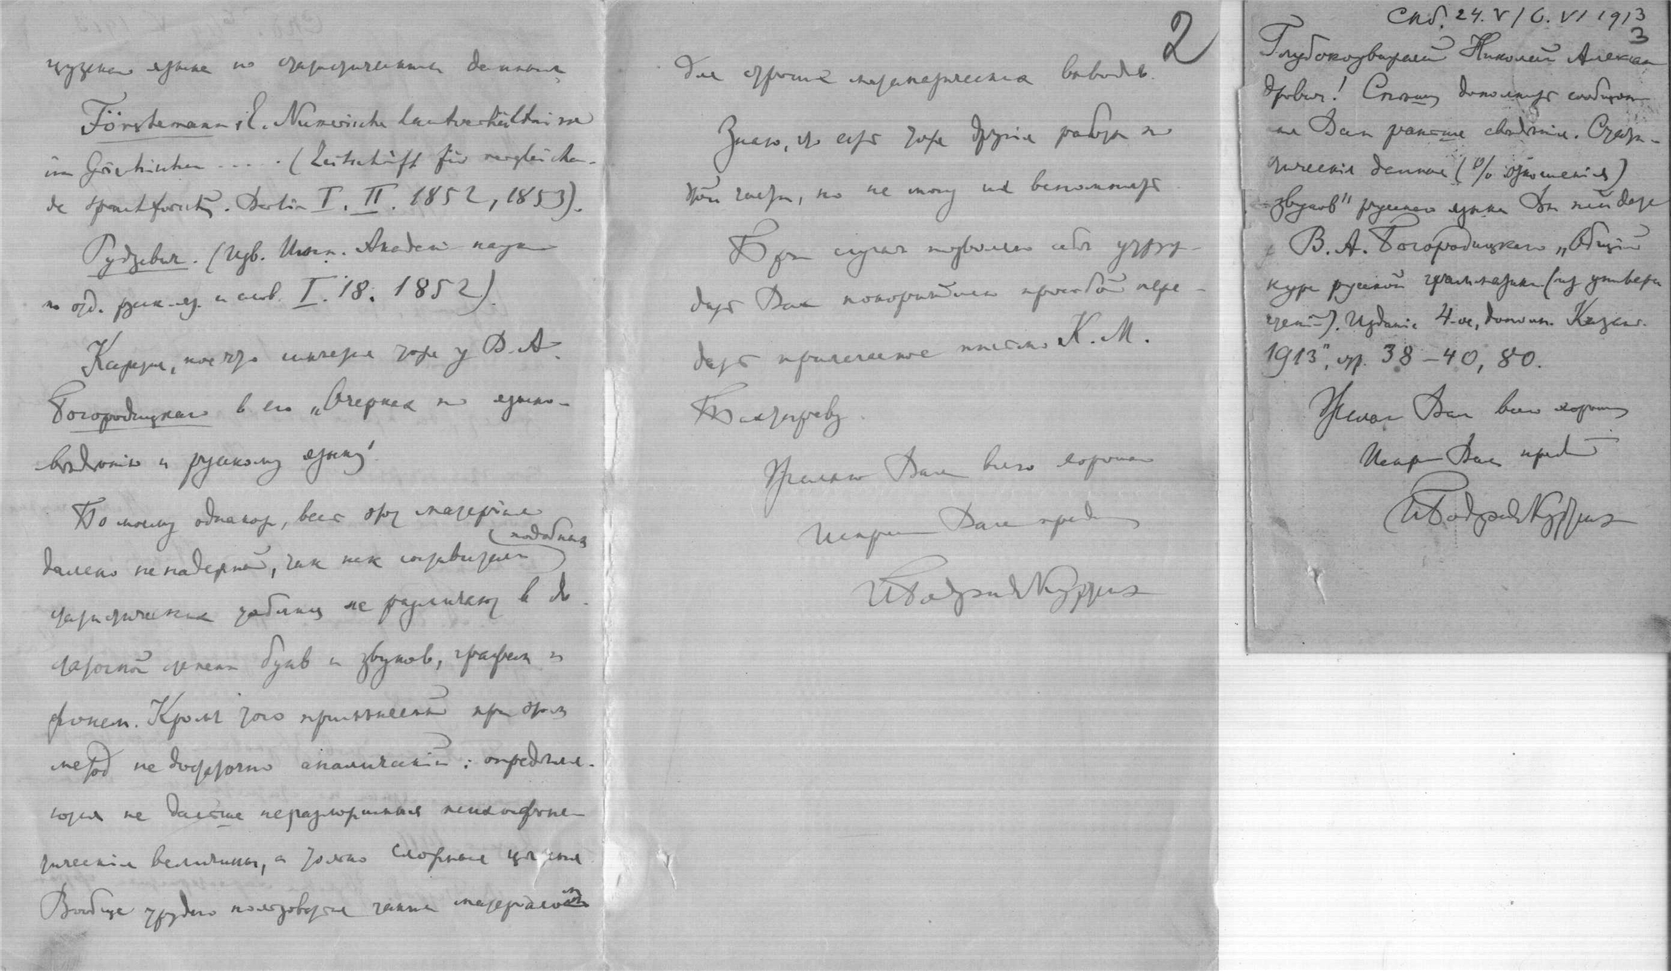 языка по статистическим данным
Förstemann, E. Numerische Lautverhältnisse
im Griechischen . . . . (Zeitschrift für vergleichen-
de Sprachforsch. Berlin I. II. 1852, 1853).
(Изв. Имп. Академии наук
по отд. русск. яз. и слов. I. 18. 1852).
Кажется, кое что имеется тоже у В. А.
Богородицкаго в его „Очерках по языко-
ведению и русскому языку"
По моему однакож, весь этот материал
подобных
далеко ненадежный, так как составители
статистических таблиц не различают в до-
статочной степени букв и звуков, графем и
фонем. Кроме того применяемый при этом
метод не достаточно аналитический: определя-
ются не дальше неразложимыя психофоне-
тическия величины, а только сложныя целыя
Вообще трудно пользоваться таким материалом
2
для строгих математических выводов.
Знаю, что есть тоже другия работы по
этой части, но не могу их вспомнить.
При случае позволяю себе утру-
дить Вас покорнейшей просьбой пере-
дать прилагаемое письмо К. М.
Желаю Вам всего хорошаго
Искренно Вам пред.
ИБодуэндеКуртенэ
Спб. 24. V / 6. VI 1913
3
Глубокоуважаемый Николай Алексан
дрович! Спешу дополнить сообщен-
ныя Вам раньше сведения. Статис-
тическия данныя (% отношения)
„звуков" русскаго языка Вы найдете
В. А. Богородицкаго „Общий
курс русской грамматики (из университ
чтений). Издание 4-ое, дополн. Казань.
1913", стр. 38–40, 80.
Желаю Вам всего хорошаго
Искренно Вам пред.
ИБодуэндеКуртенэ